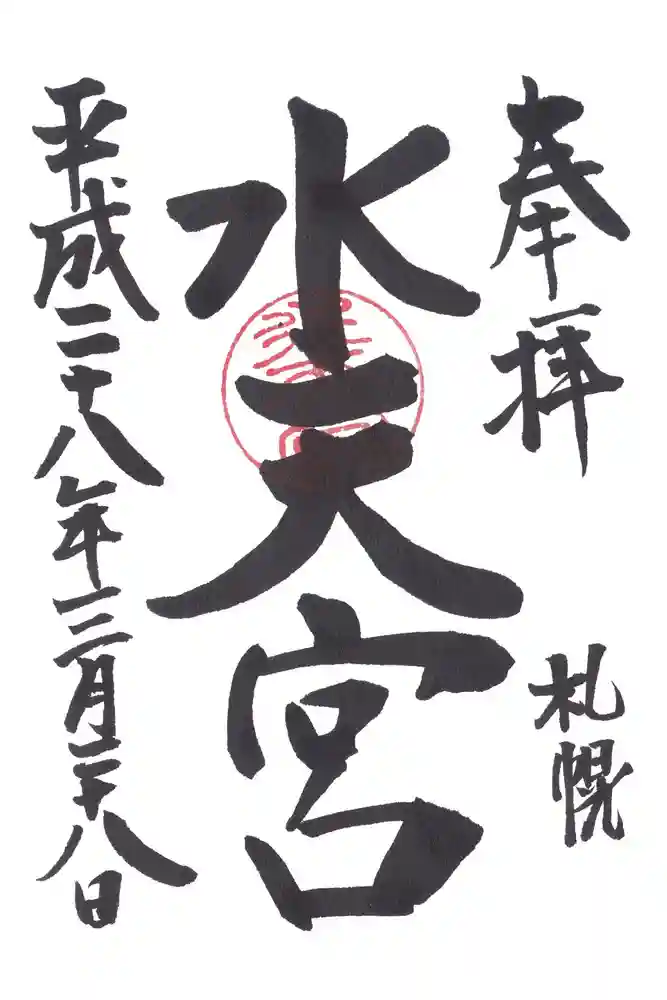 奉拝
札幌
水天宮
平成二十八年三月二十八日